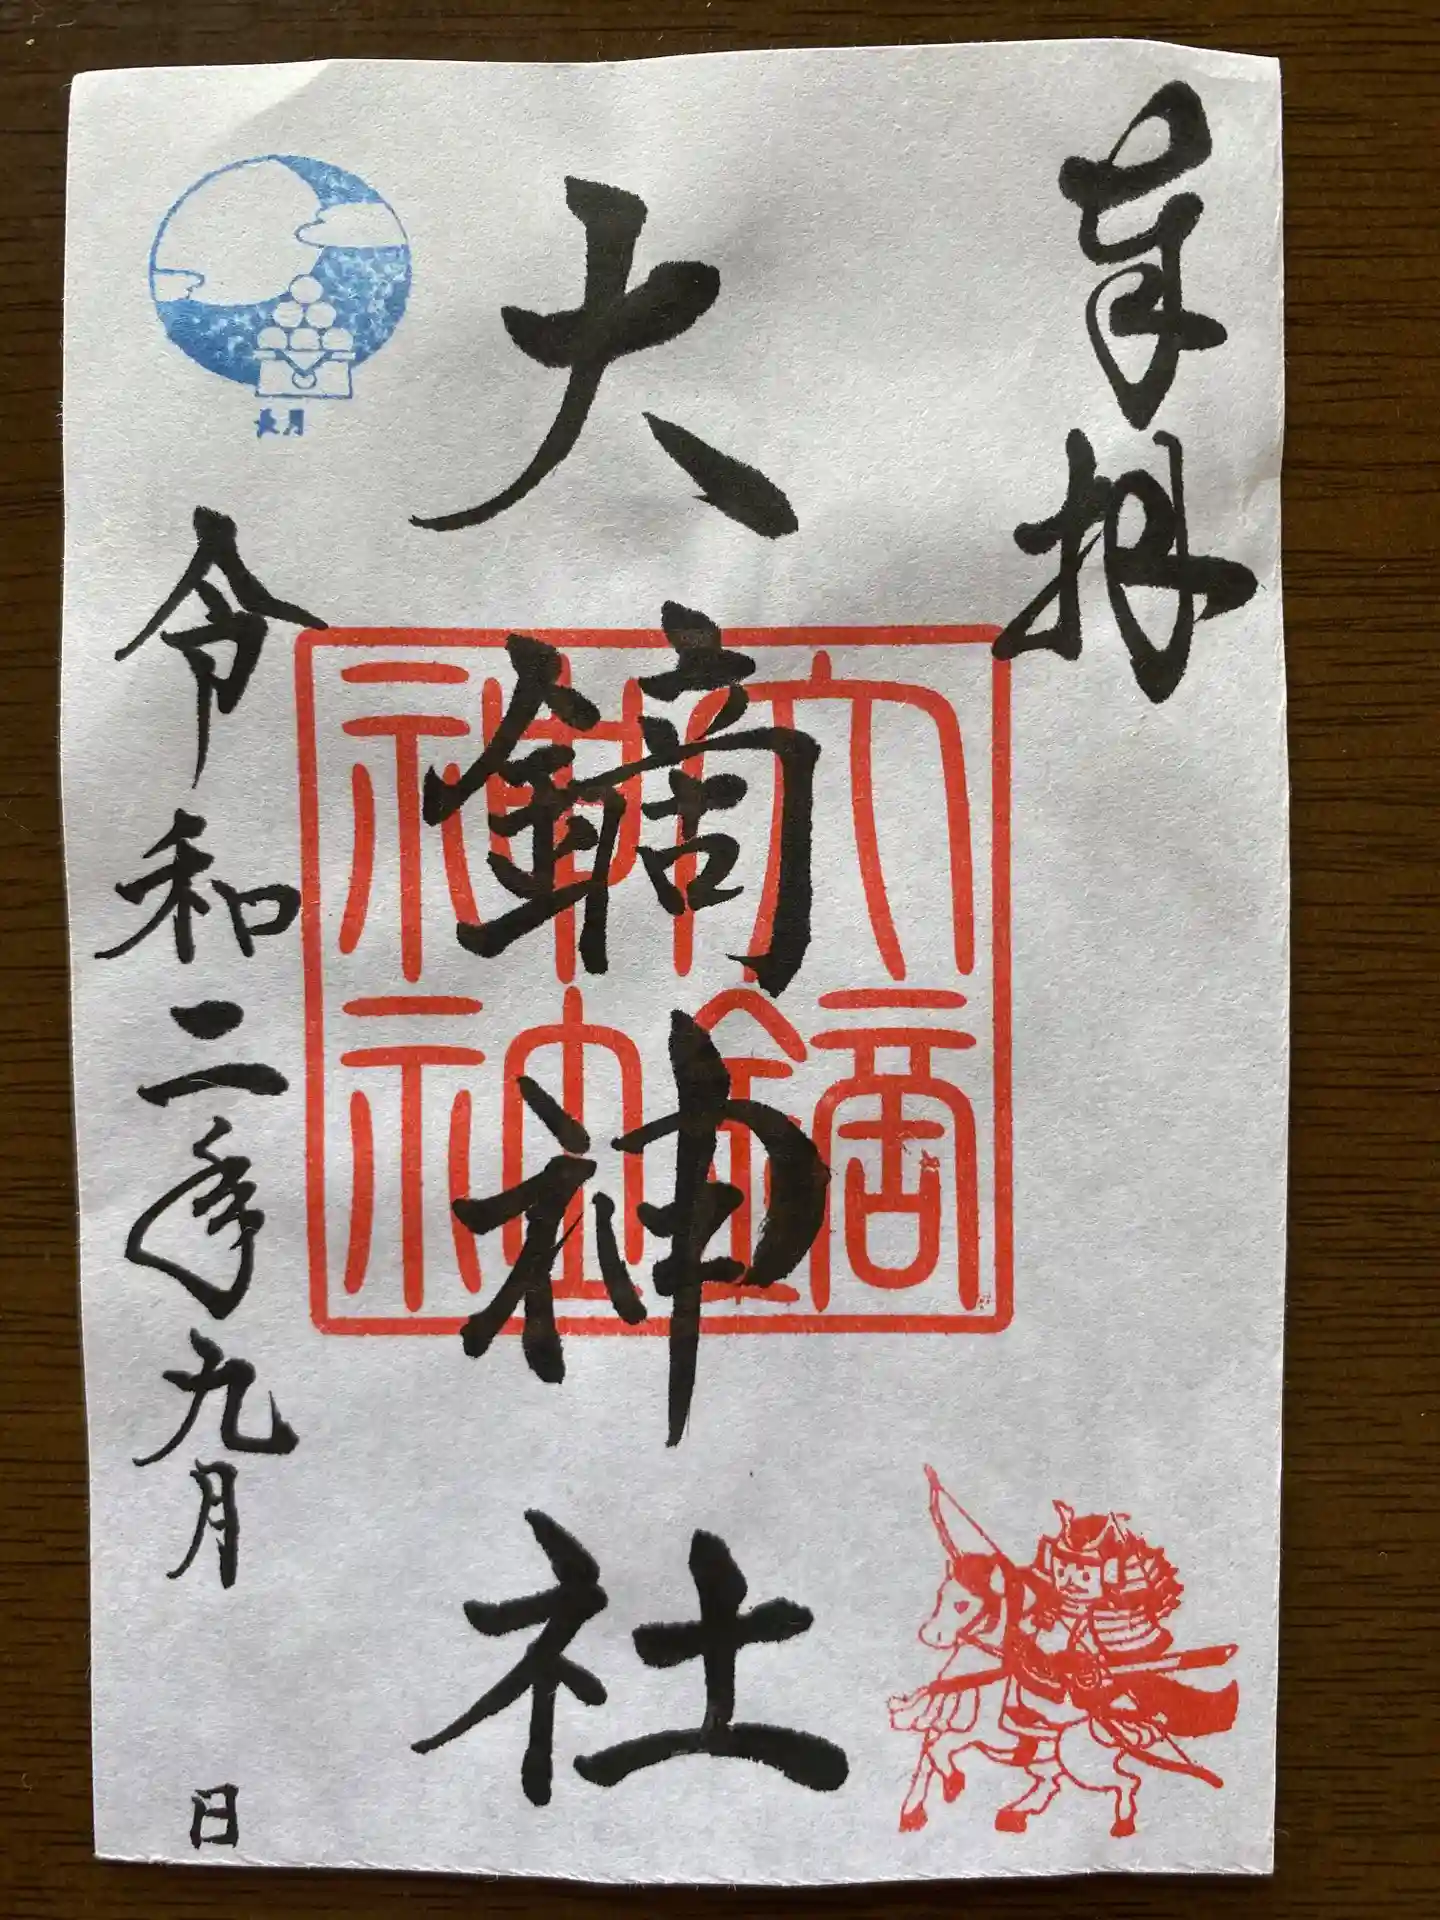 奉拝
大鏑神社
大鏑神社
令和二年九月 日
長月